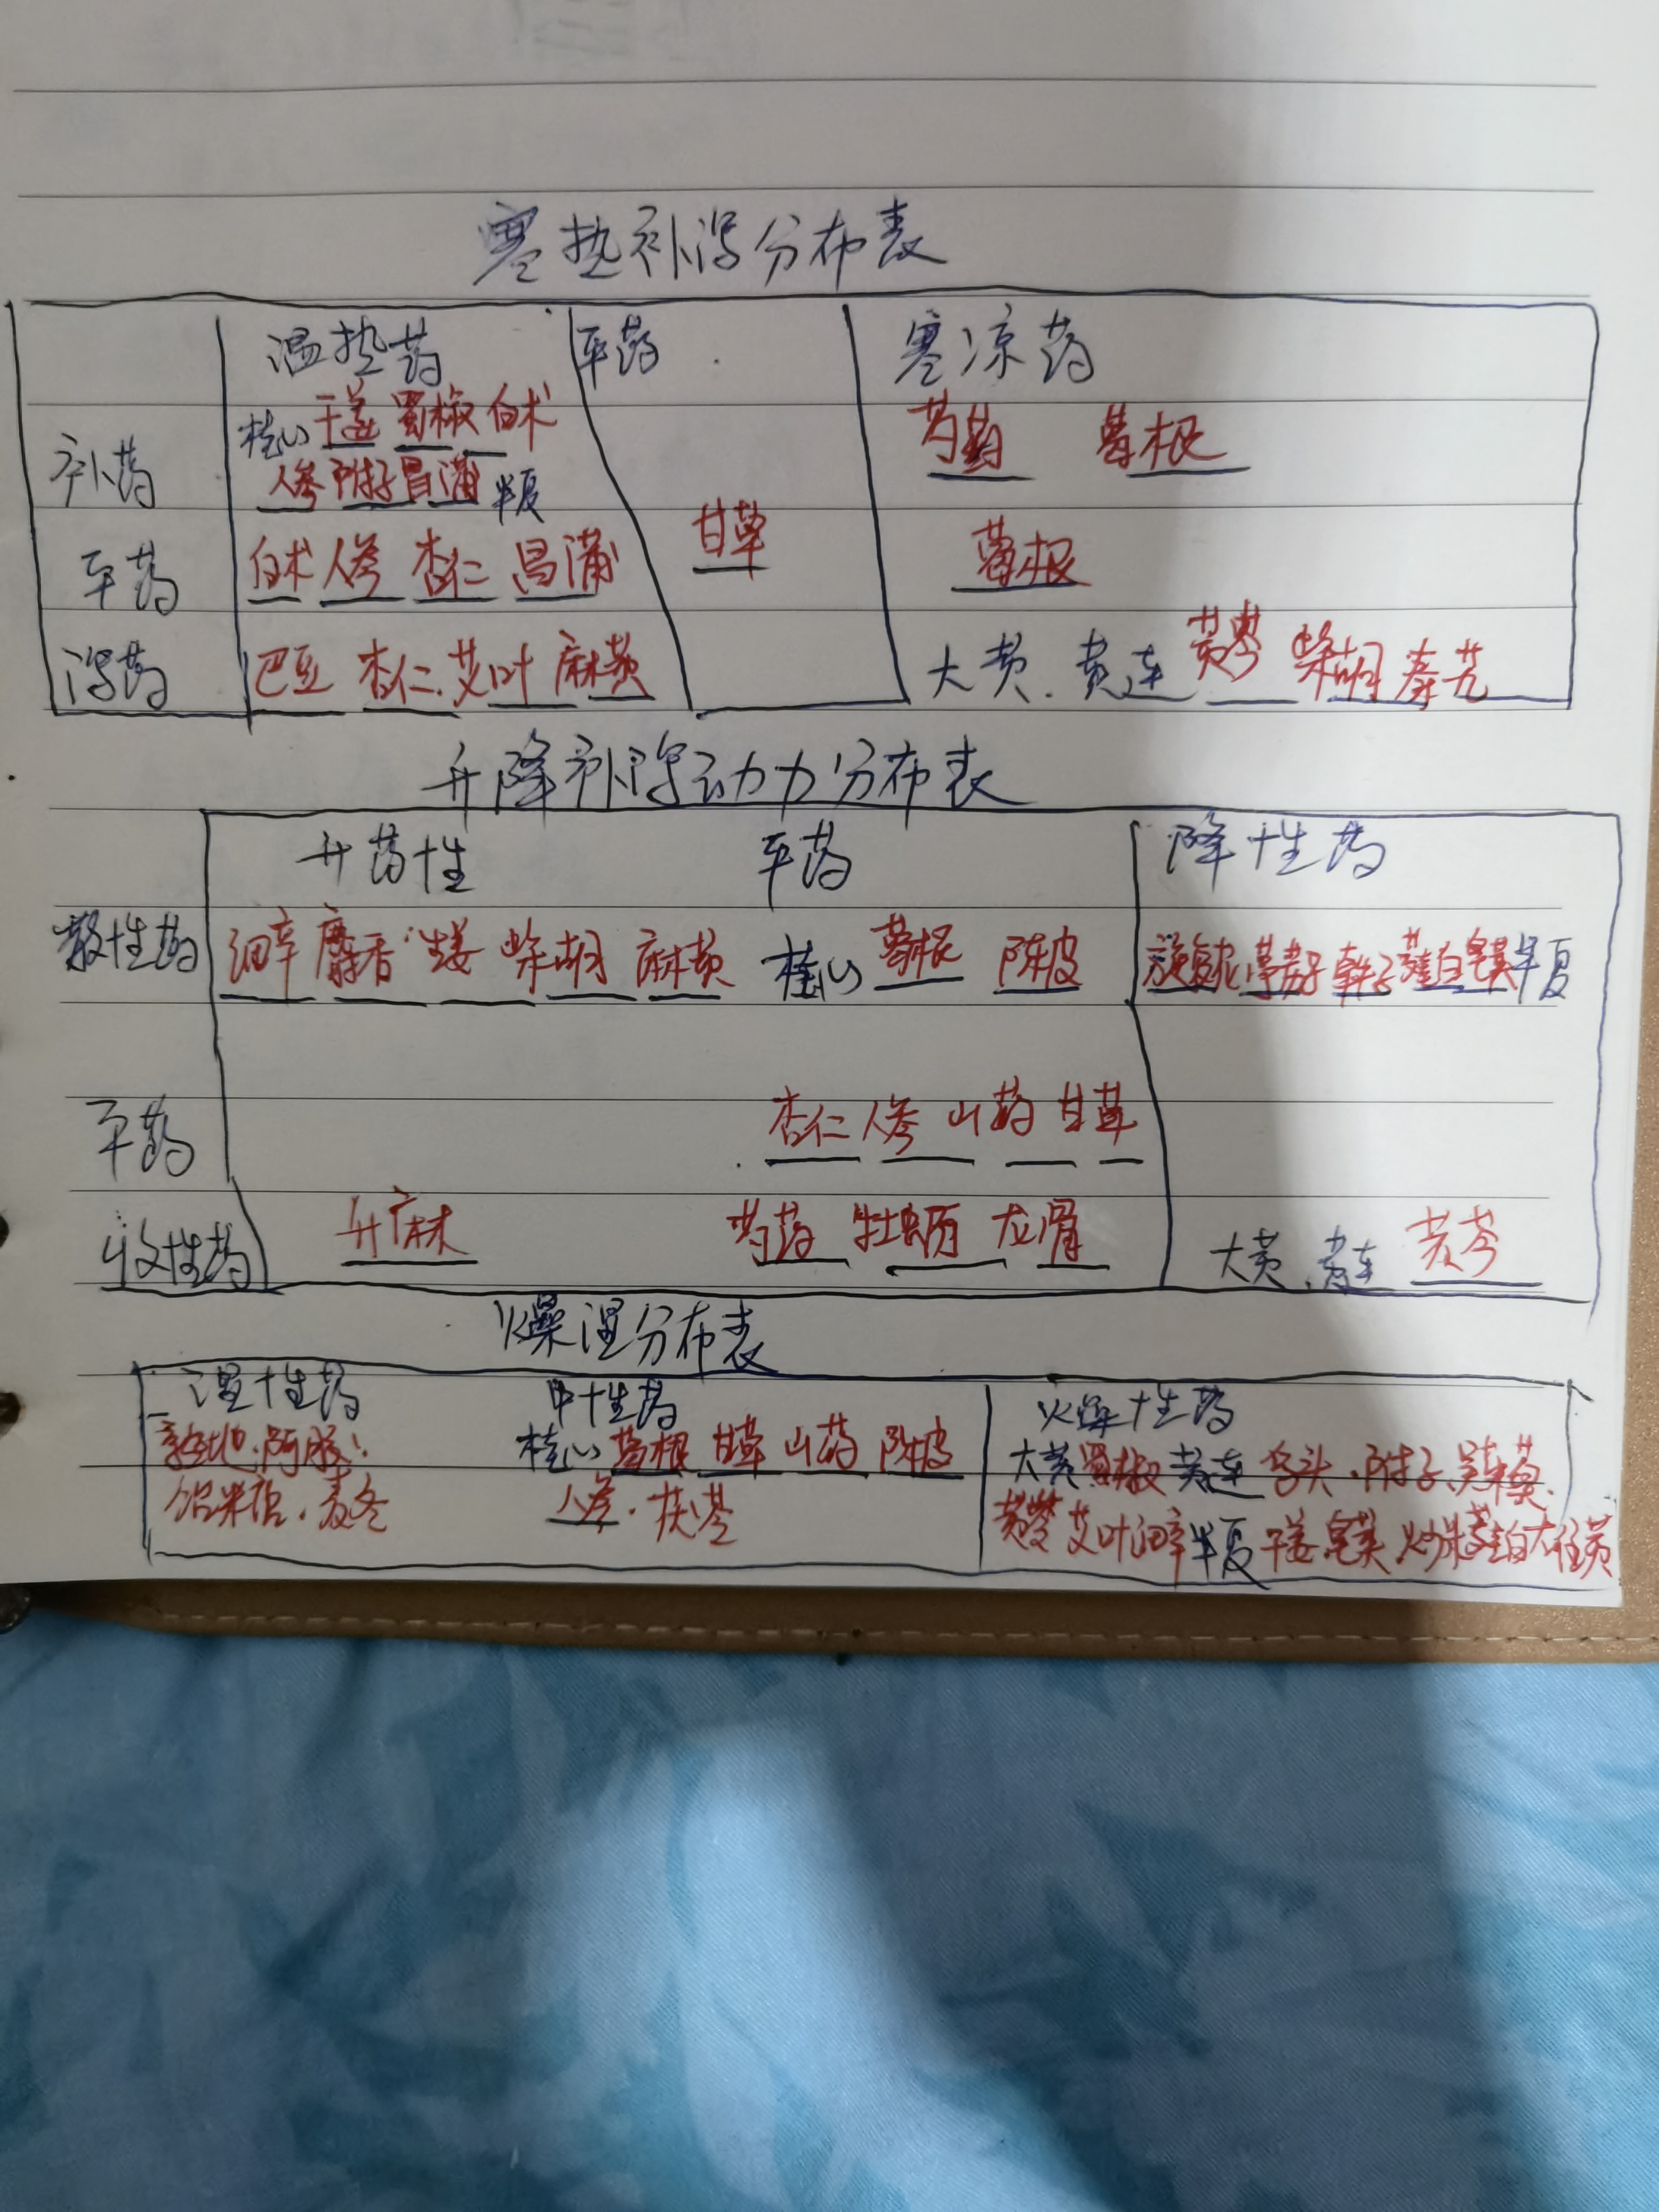 寒热补泻分布表
温热药 平药 寒凉药
补药 桂心 干姜 蜀椒 白术 芍药 葛根
人参 附子 菖蒲 半夏
甘草
平药 白术 人参 杏仁 菖蒲 葛根
泻药 巴豆 杏仁.艾叶 麻黄 大黄.黄连 黄芩 柴胡 秦艽
升降补泻动力分布表
升药性 平药 降性药
散性药 细辛 麝香 生姜 柴胡 麻黄 桂心 葛根 陈皮 旋复花 葶苈子 牵牛子 薤白 皂荚 半夏
平药 杏仁 人参 山药 甘草
收性药 升麻 芍药 牡蛎 龙骨 大黄.黄连 黄芩
燥湿分布表
湿性药 中性药 燥性药
熟地.阿胶. 桂心 葛根 甘草 山药 陈皮 大黄 蜀椒 黄连 乌头.附子.吴茱萸.
饴米 麦冬 人参.茯苓 黄芩 艾叶 细辛 半夏 干姜 皂荚 薤白